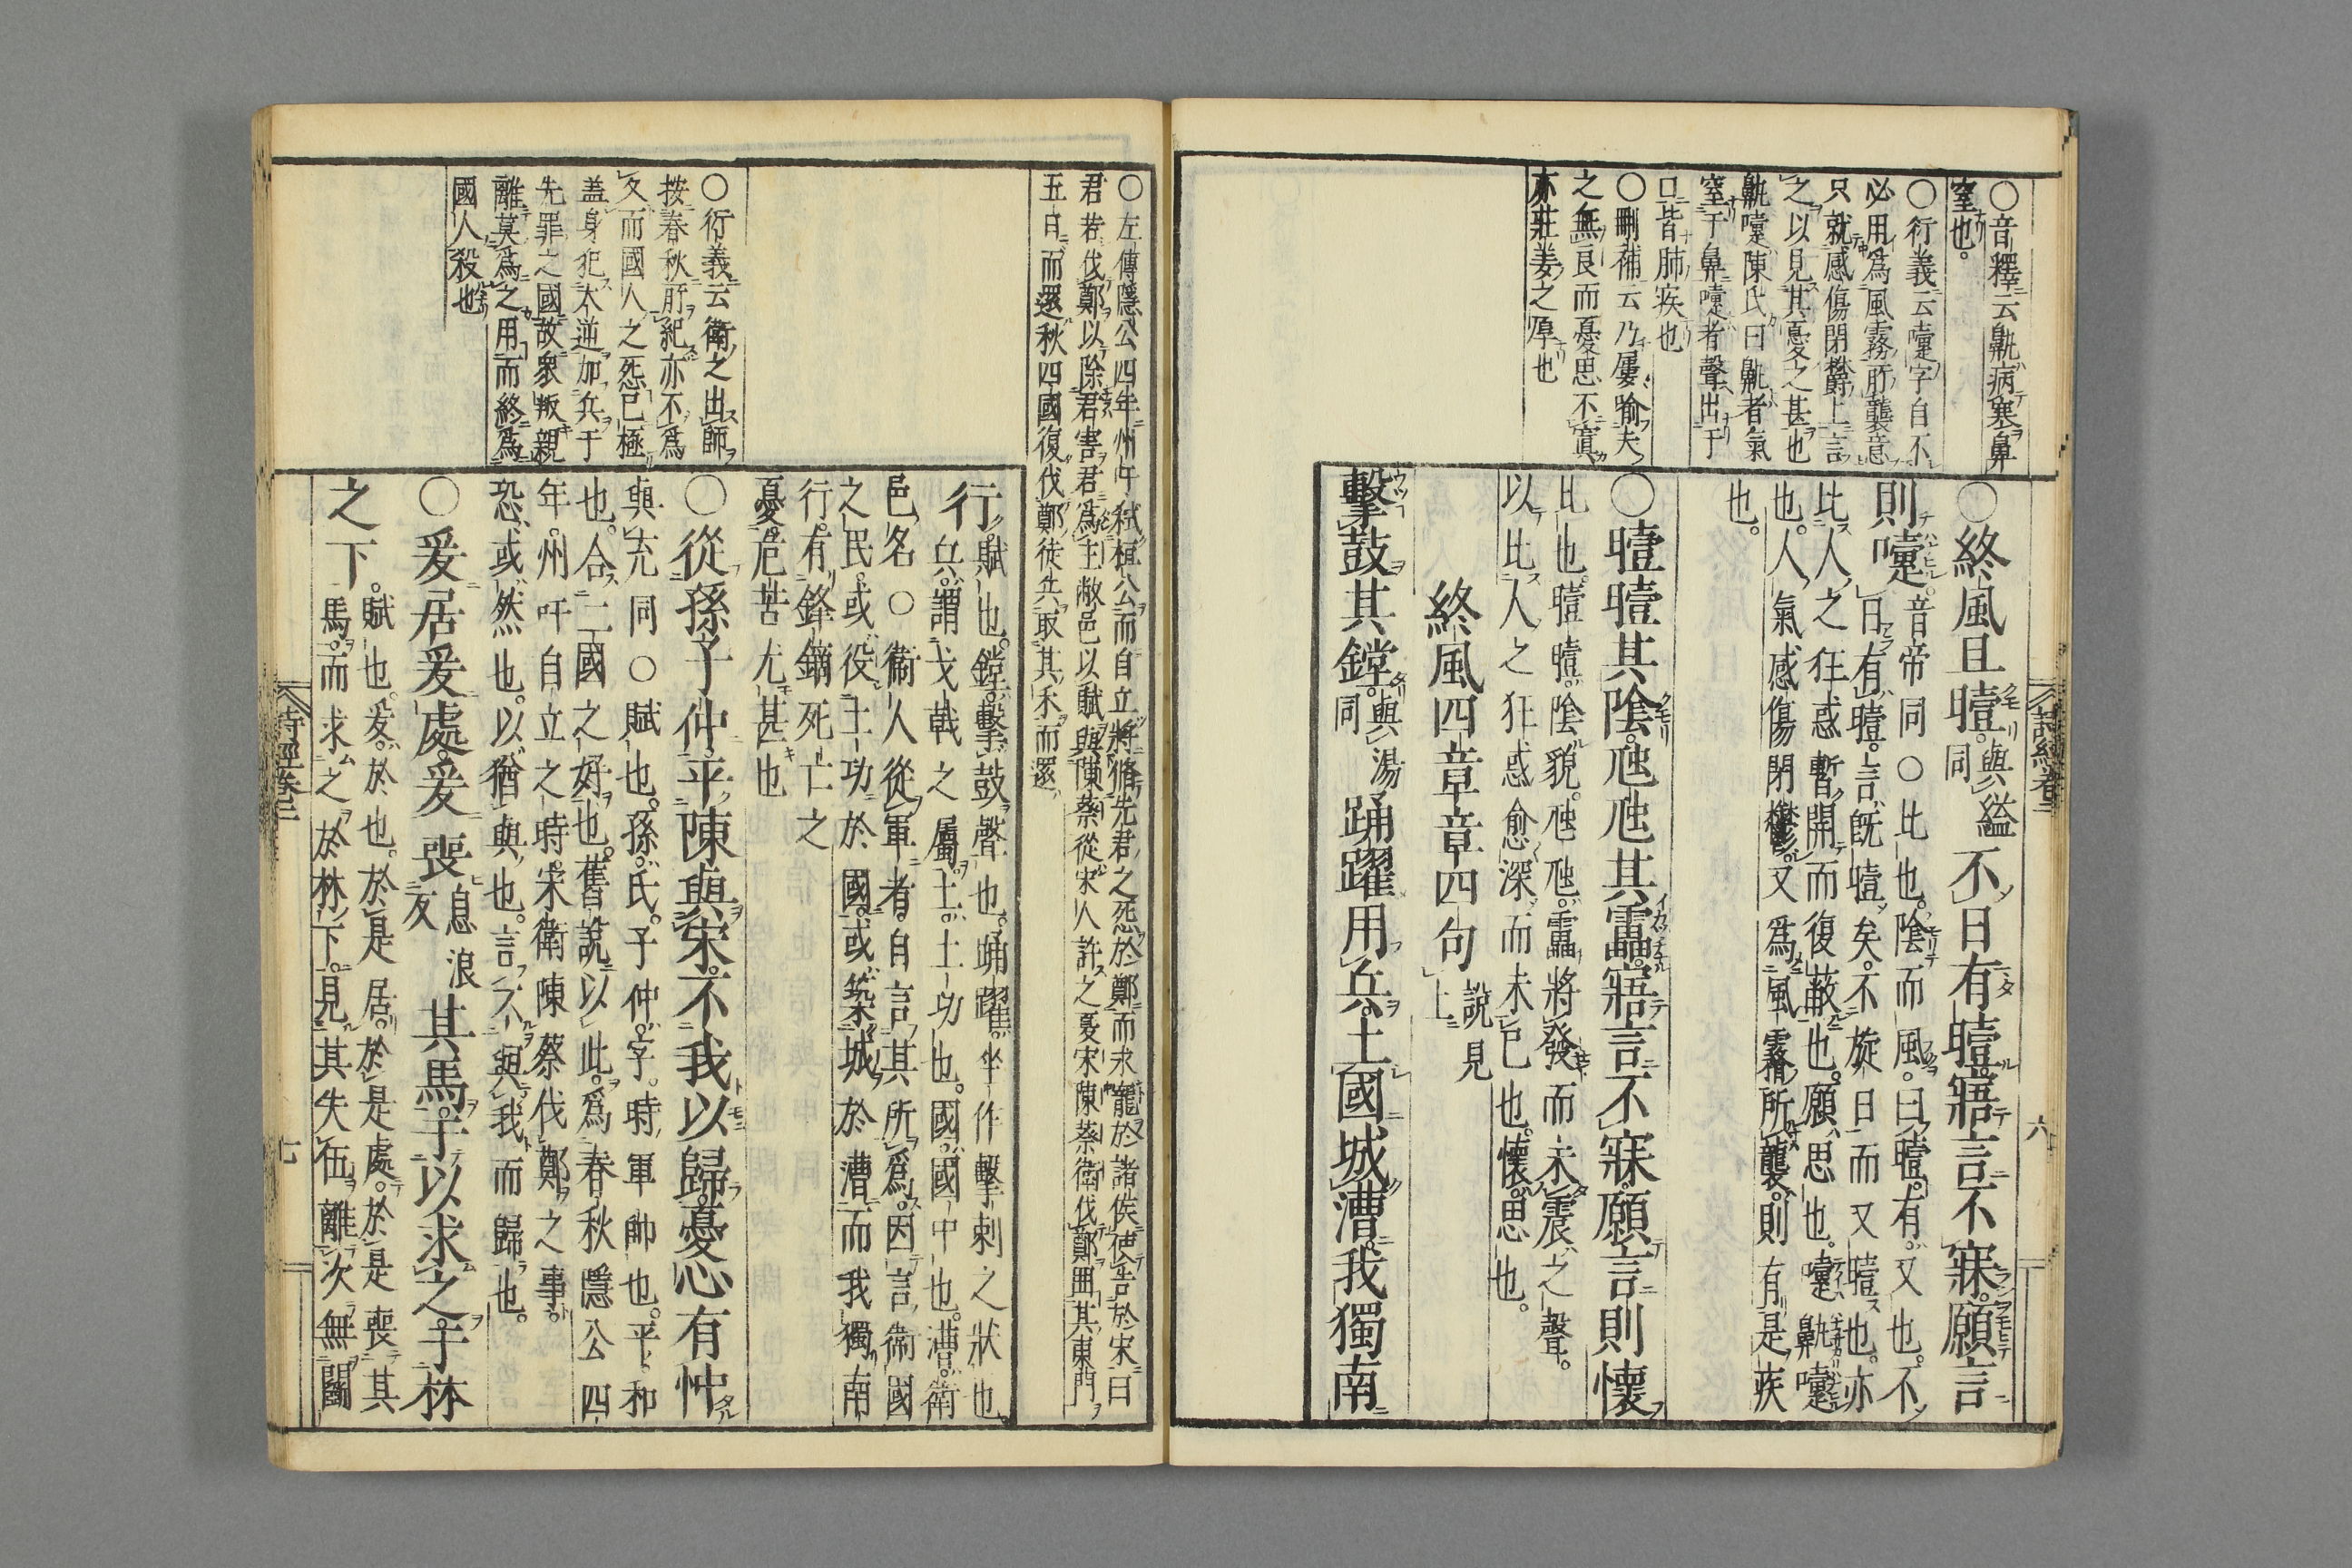 ○音釋云鼽病寒鼻
窒也。
○衍義云嚏字自不
必用爲風霧所襲意
只就感傷閉欝上言
之以見其憂之甚也
鼽嚏陳氏曰鼽者氣
窒于鼻嚏者聲出于
口皆肺疾也
○刪補云乃屢喻夫
之無良而憂思不寘
亦莊姜之厚也
○終風且曀。與縊同不日有曀。寤言不寐。願言
則嚏。音帝同○比也。陰而風。曰曀。有。又也。不
日有曀。言既曀矣。不旋日而又曀也。亦
比人之狂惑暫開而復蔽也。願。思也。嚏。鼽嚏
也。人氣感傷閉欝。又爲風霧所襲。則有是疾
也。
○曀曀其陰。虺虺其靁。寤言不寐。願言則懷
比也。曀曀。陰貌。虺虺。靁將發而未震之聲。
以比人之狂惑愈深而未已也。懷。思也。
終風四章章四句說見上
擊鼓其鏜。與湯同踊躍用兵。土國城漕。我獨南
詩經卷二
六
○左傳隱公四年州吁弑桓公而自立將脩先君之怨於鄭而求寵於諸侯使告於宋曰
君若伐鄭以除君害君爲主敝邑以賦與陳蔡從宋人許之夏宋陳蔡衛伐鄭圍其東門
五日而還秋四國復伐鄭徒兵取其禾而還
○衍義云衛之出師
按春秋所紀亦不爲
久而國人之怨已極
蓋身犯大逆加兵于
先罪之國故衆叛親
離莫爲之用而終爲
國人殺也
行。賦也。鏜。擊鼓聲也。踊躍。坐作擊刺之狀也。
兵。謂戈戟之屬。土。土功也。國。國中也。漕。衛
邑名○衛人從軍者。自言其所爲。因言衛國
之民。或役土功於國。或築城於漕。而我獨南
行。有鋒鏑死亡之
憂。危苦尤甚也
○從孫子仲。平陳與宋。不我以歸。憂心有忡
與充同○賦也。孫。氏。子仲。字。時軍帥也。平。和
也。合二國之好也。舊說以此。爲春秋隱公四
年。州吁自立之時。宋衛陳蔡伐鄭之事。
恐或然也。以。猶與也。言不與我而歸也。
○爰居爰處。爰喪息浪反其馬。于以求之。于林
之下。賦也。爰。於也。於是居。於是處。於是喪其
馬。而求之於林下。見其失伍離次。無鬭
詩經卷二
七